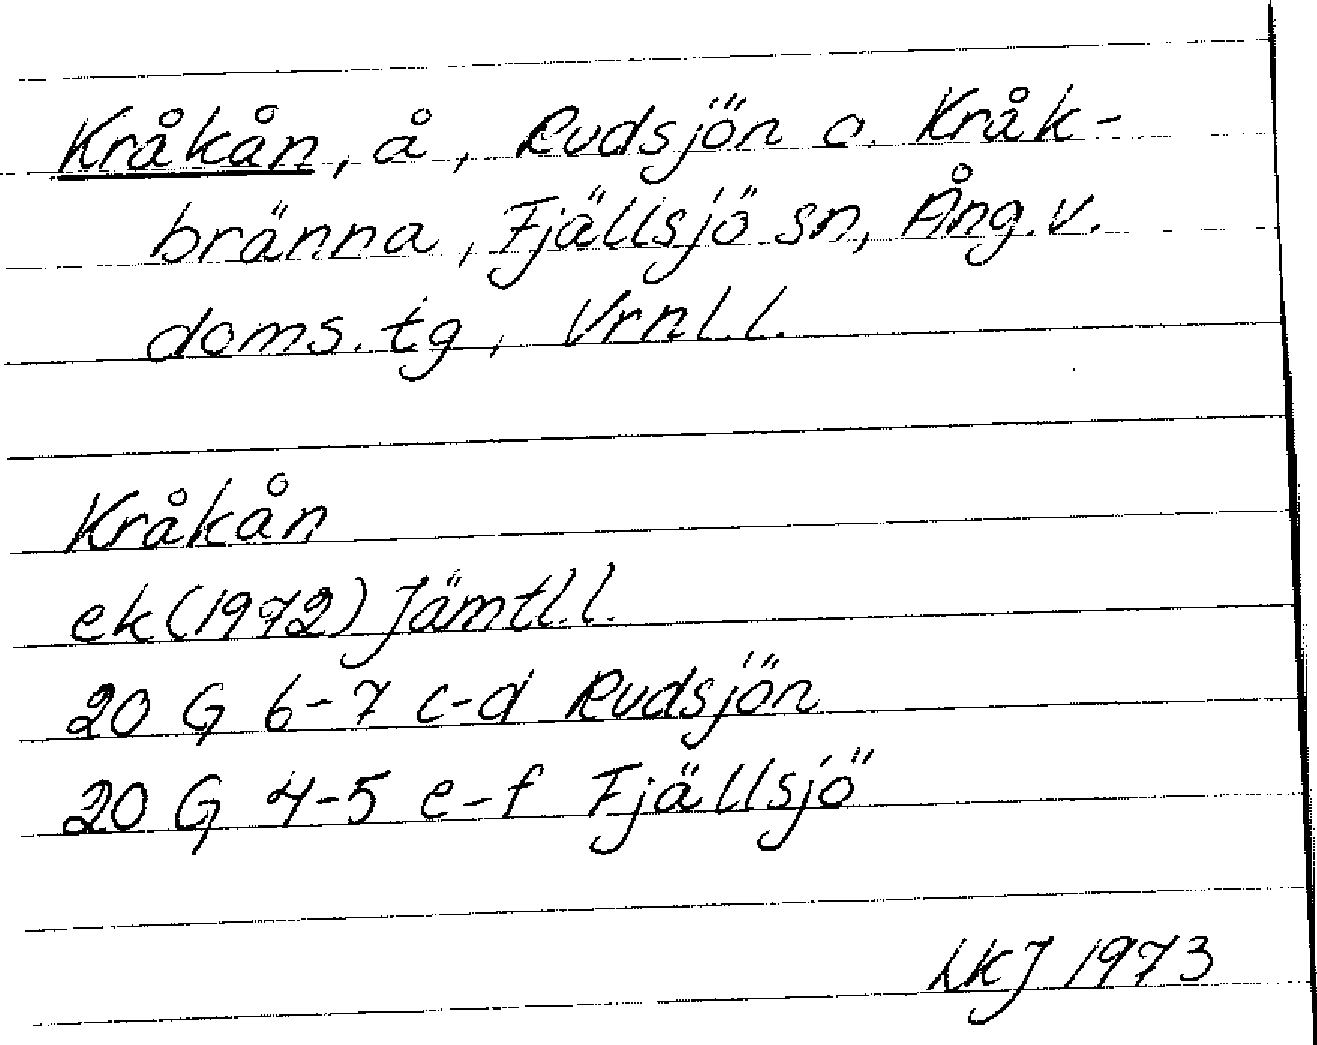 Kråkån, å, Rudsjön o. Kråk-
bränna, Fjällsjö sn, Ång.v.
doms.tg, Vrnl.l.
Kråkån
ek(1972) Jämtl.l.
20 G 6-7 c-d Rudsjön
20 G 4-5 e-f Fjällsjö
LKJ 1973